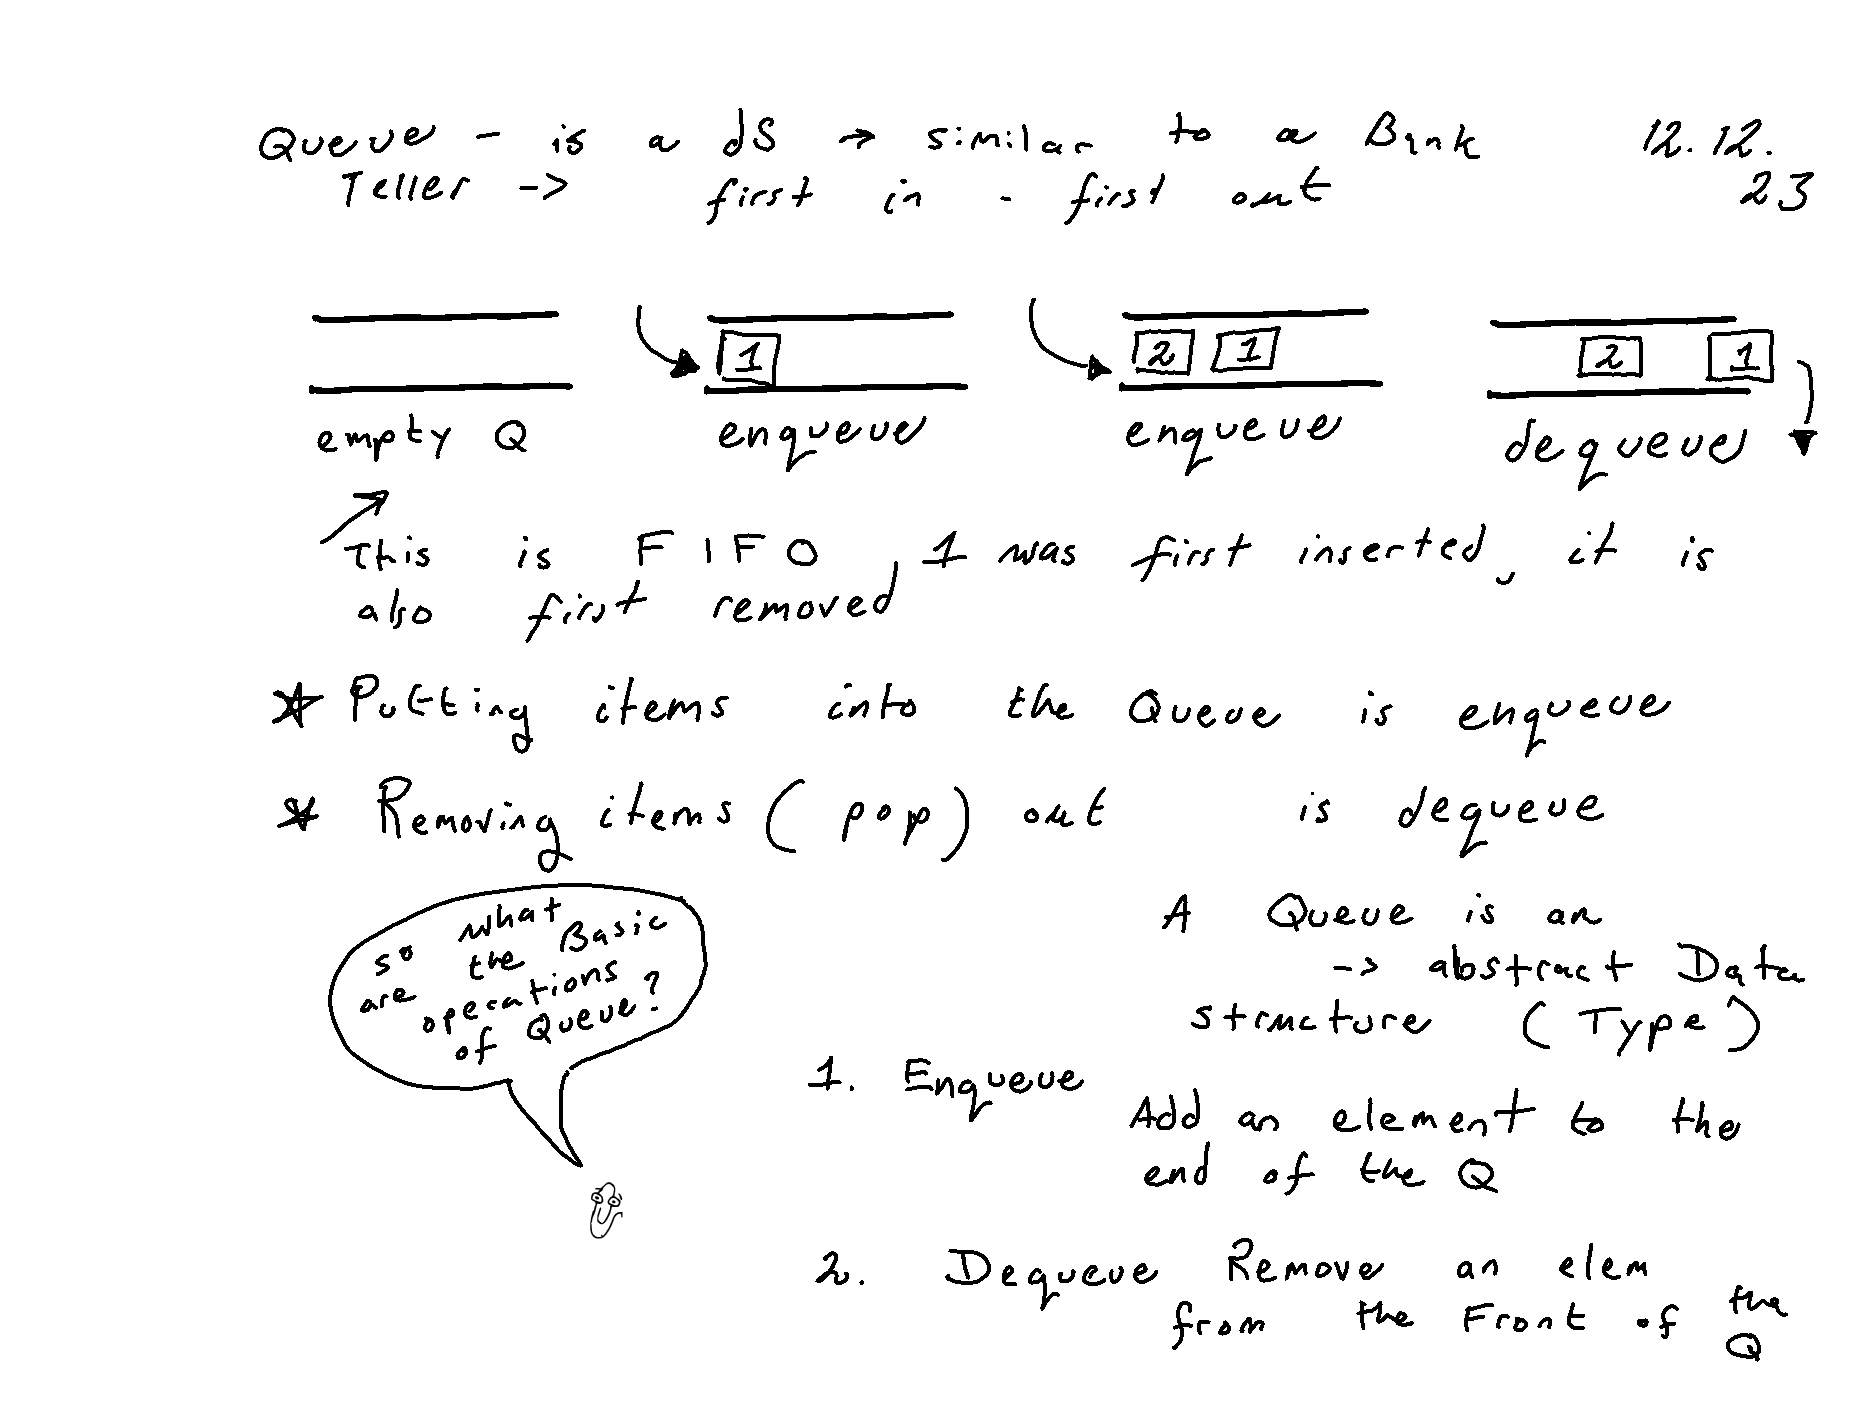 Queue - is a dS → similar to a Bank 12.12.
Teller -> first in - first out 23
1
2 1
2 1
empty Q enqueue enqueue dequeue
This is FIFO, 1 was first inserted, it is
also first removed
* Putting items into the Queue is enqueue
* Removing items (pop) out is dequeue
so what
are the Basic
operations
of Queue?
A Queue is an
-> abstract Data
structure (Type)
1. Enqueue
Add an element to the
end of the Q
2. Dequeue Remove an elem
from the Front of the
Q